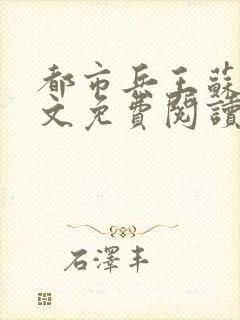 都市兵王蘇
文免費閱讀
石澤丰